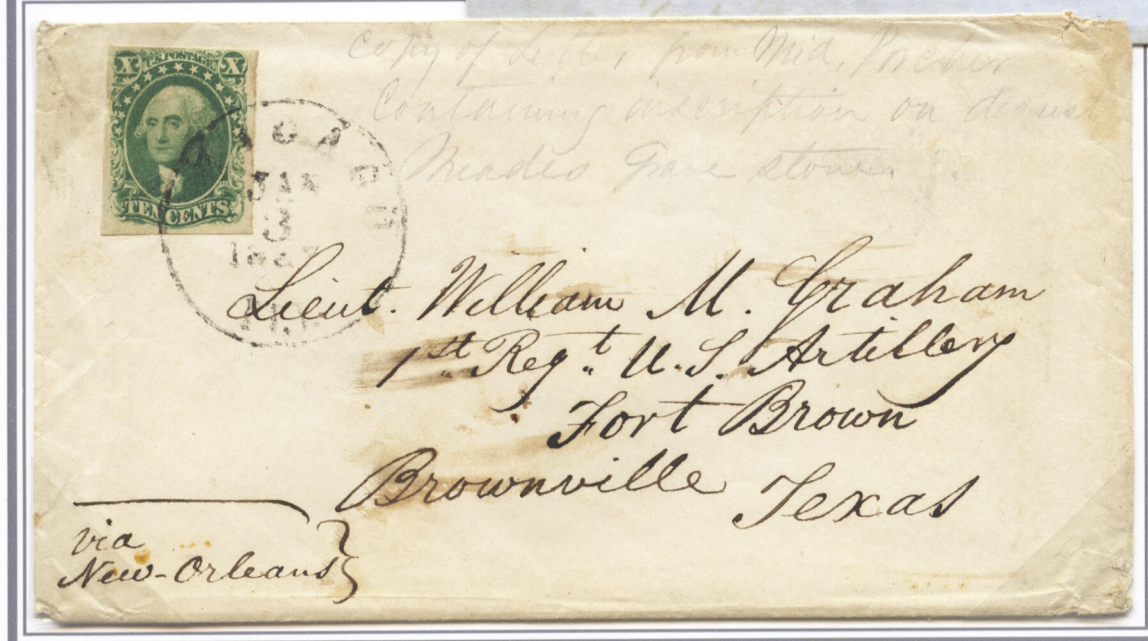 X U.S. POSTAGE X
TEN CENTS
JAN
3
Copy of Letter from Mid.
Containing inscription on dearest
Meades Grave stone.
Lieut. William M. Graham
1st Regt. U.S. Artillery
Fort Brown
Brownville Texas
via
New-Orleans